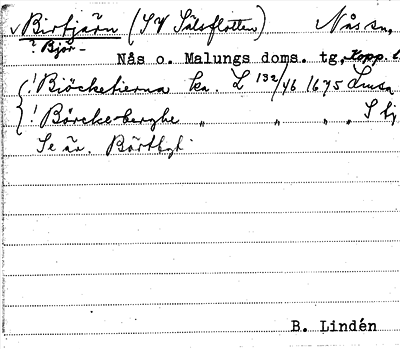 √ Birtjärn (SV Sälsflotten) Nås sn,
? Björ-
Nås o. Malungs doms. tg, Kopp. l
! Biöcketierna ka. L 132/46 1675 Lmsa
! Börcke-berghe " " " S bj
Se äv. Börtbgt
B. Lindén